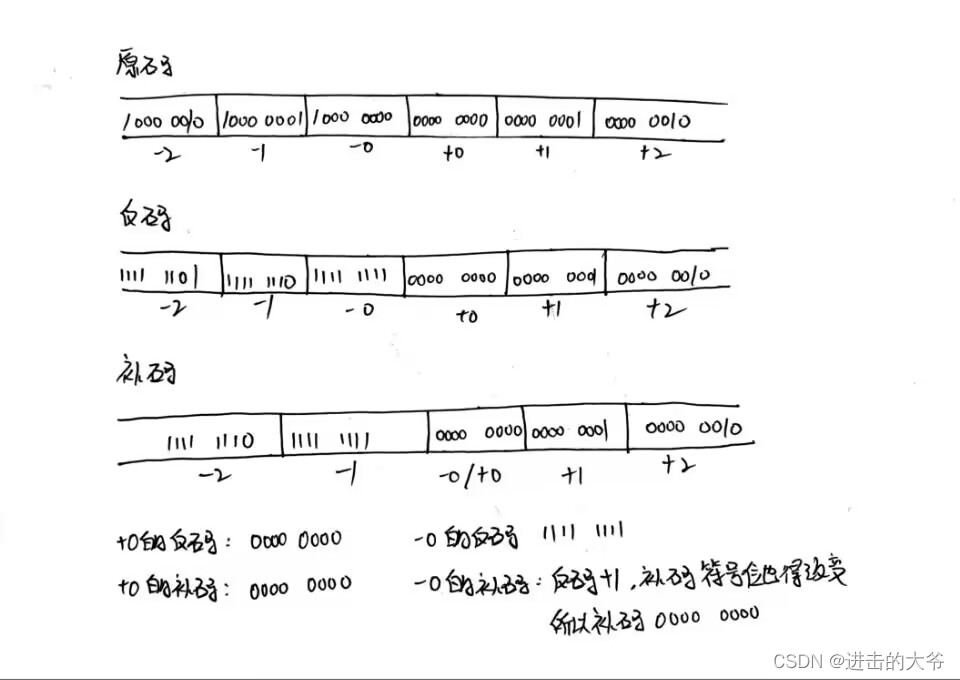 原码
1000 0010 1000 0001 1000 0000 0000 0000 0000 0001 0000 0010
-2 -1 -0 +0 +1 +2
反码
1111 1101 1111 1110 1111 1111 0000 0000 0000 0001 0000 0010
-2 -1 -0 +0 +1 +2
补码
1111 1110 1111 1111 0000 0000 0000 0001 0000 0010
-2 -1 -0/+0 +1 +2
+0的反码: 0000 0000 -0的反码 1111 1111
+0的补码: 0000 0000 -0的补码: 反码+1,补码符号位也得改变
所以补码 0000 0000
CSDN @进击的大爷